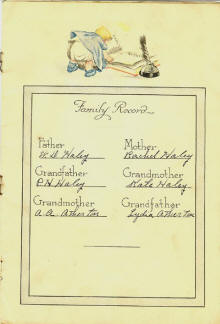 Family Record
Father Mother
W. S. Haley Rachel Haley
Grandfather Grandmother
P. H. Haley Kate Haley
Grandmother Grandfather
A. A. Atherton Lydia Atherton